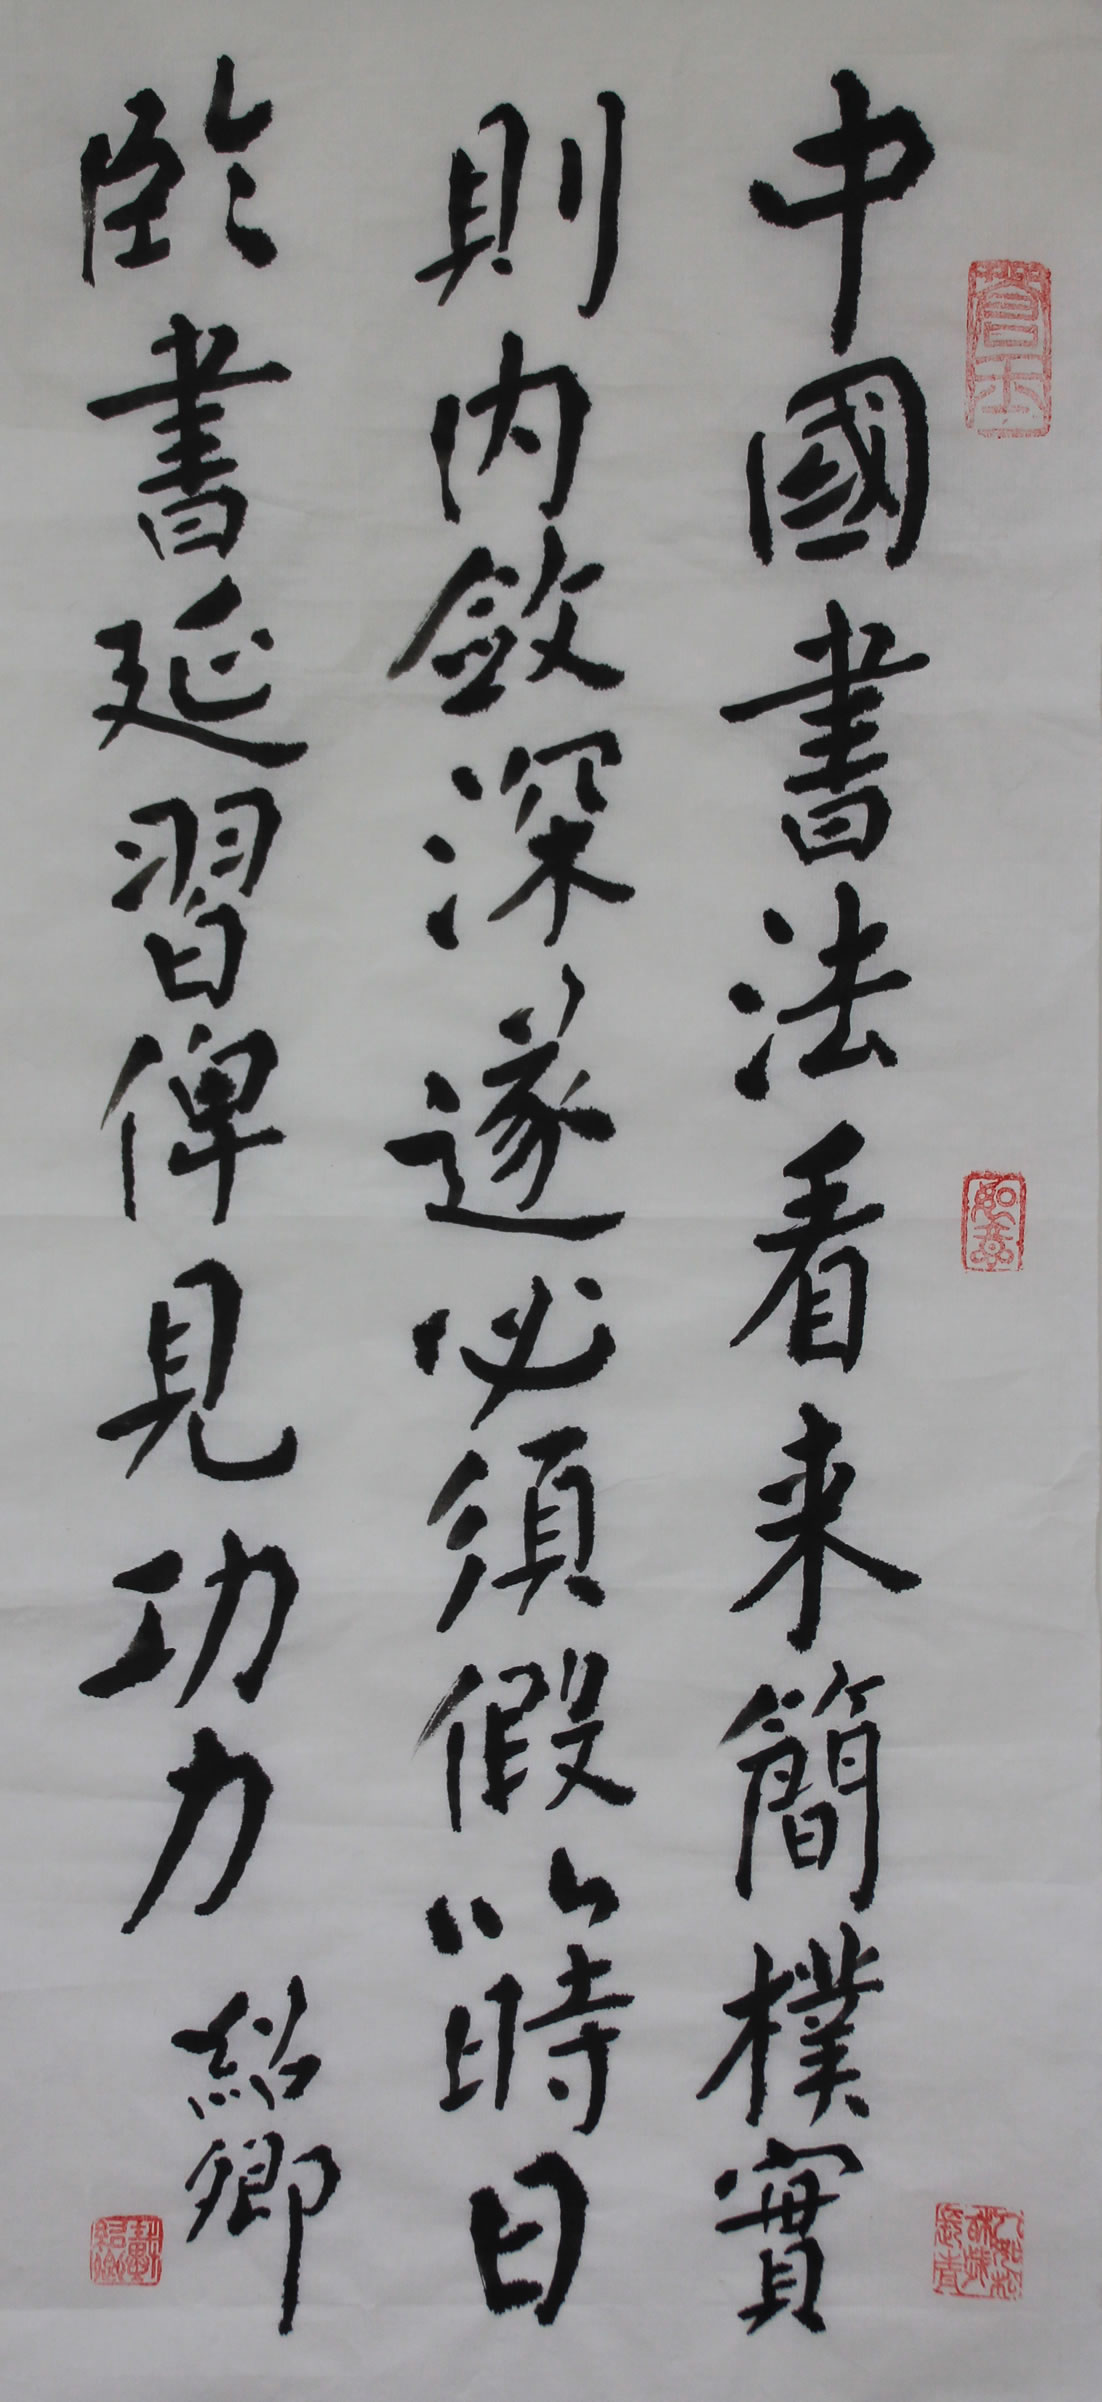 中國書法看来簡樸實
則内斂深邃必須假以時日
臨書延習俾見功力
紹卿
如意